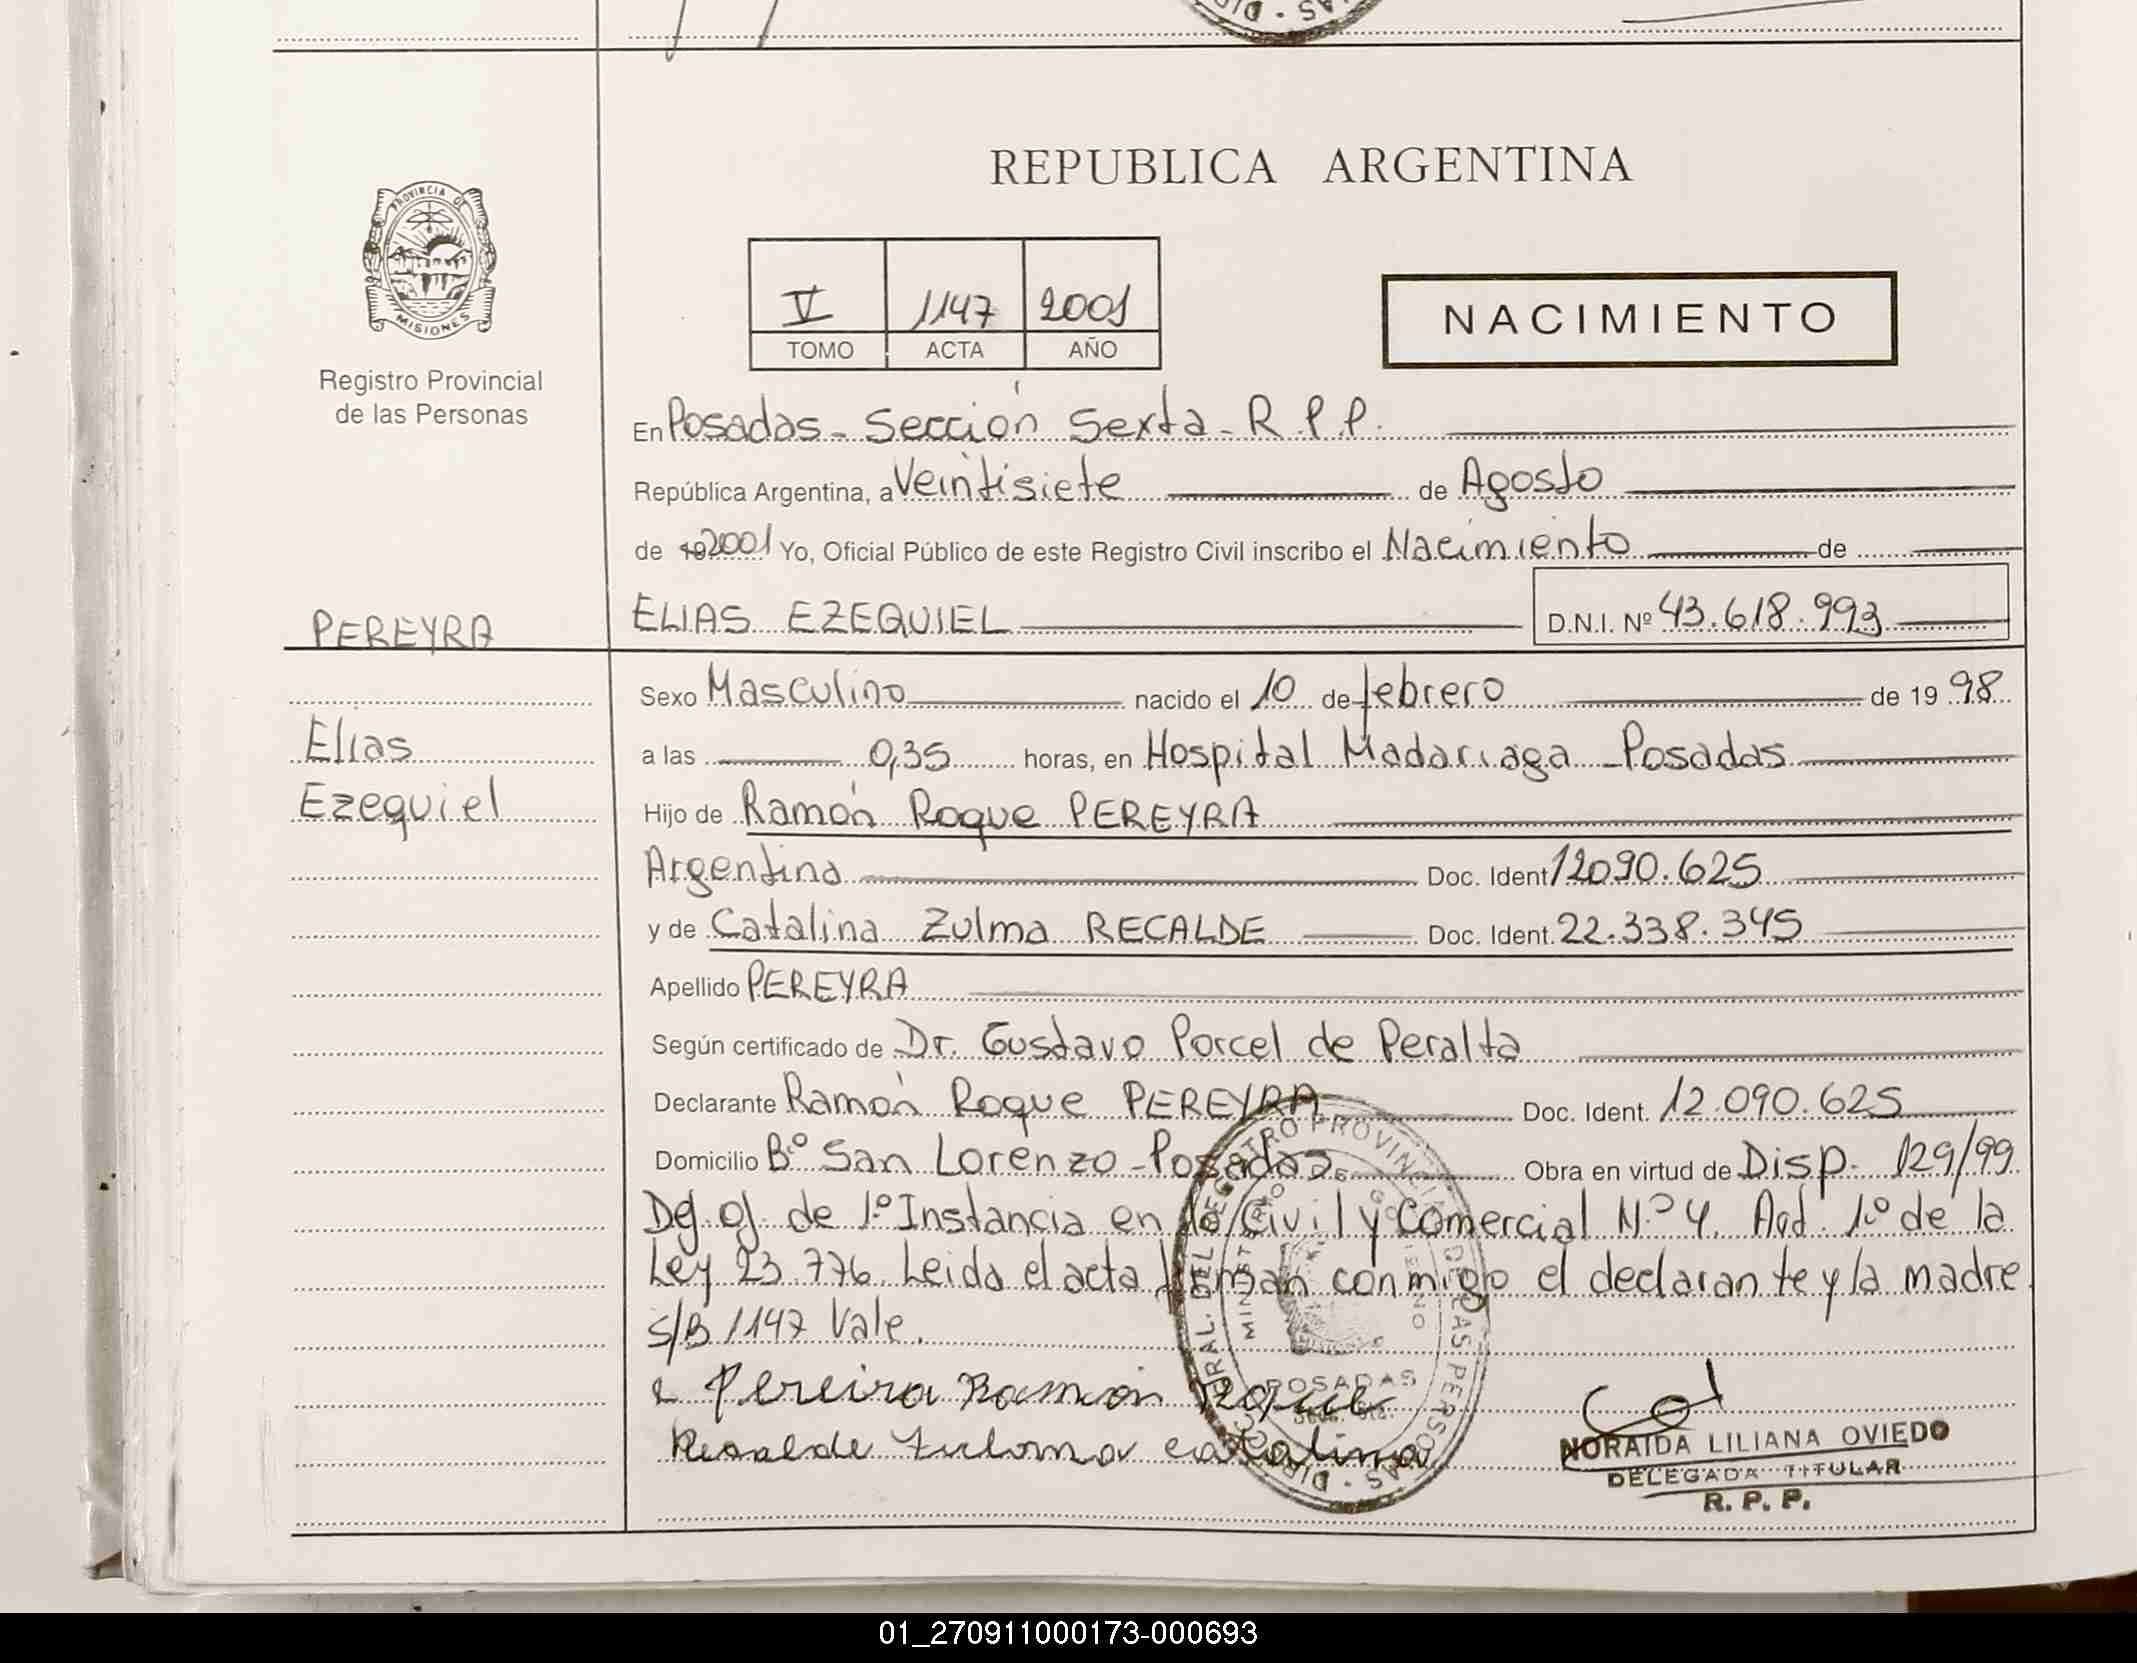 REPUBLICA ARGENTINA
PROVINCIA DE
MISIONES
Registro Provincial
de las Personas
V 1147 2001
TOMO ACTA AÑO
NACIMIENTO
En Posadas - Sección Sexta - R.P.P.
República Argentina, a Veintisiete de Agosto
de 19 2001 Yo, Oficial Público de este Registro Civil inscribo el Nacimiento de
PEREYRA
ELIAS EZEQUIEL D.N.I. Nº 43.618.993
Sexo Masculino nacido el 10 de febrero de 19 98
Elias
a las 0,35 horas, en Hospital Madariaga - Posadas
Ezequiel
Hijo de Ramón Roque PEREYRA
Argentina Doc. Ident 12090.625
y de Catalina Zulma RECALDE Doc. Ident. 22.338.345
Apellido PEREYRA
Según certificado de Dr. Gustavo Porcel de Peralta
Declarante Ramón Roque PEREYRA Doc. Ident. 12.090.625
Domicilio Bº San Lorenzo - Posadas Obra en virtud de Disp. 129/99
de 1º Instancia en lo Civil y Comercial N.º 4. 1º de la
Ley 23.776 Leida el acta firman conmigo el declarante y la madre.
S/B 1147 Vale.
Pereira Ramon Roque
Recalde Zulma catalina
REGISTRO PROVINCIAL DE LAS PERSONAS
MINISTERIO DE GOBIERNO
POSADAS
NORAIDA LILIANA OVIEDO
DELEGADA TITULAR
R. P. P.
01_270911000173-000693